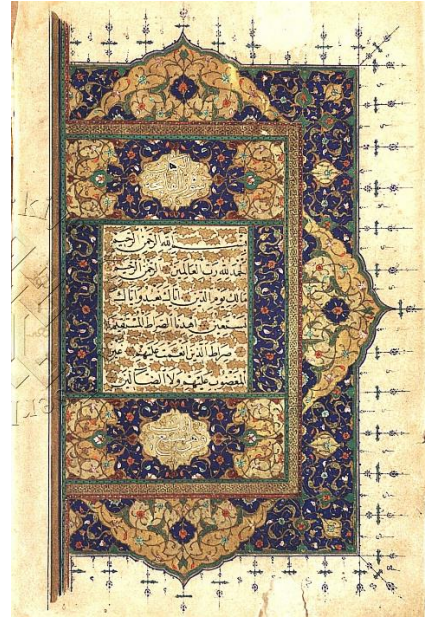 بسم الله الرحمن الرحيم
الحمد لله رب العالمين الرحمن الرحيم
مالك يوم الدين اياك نعبد واياك
نستعين اهدنا الصراط المستقيم
صراط الذين انعمت عليهم غير
المغضوب عليهم ولا الضالين